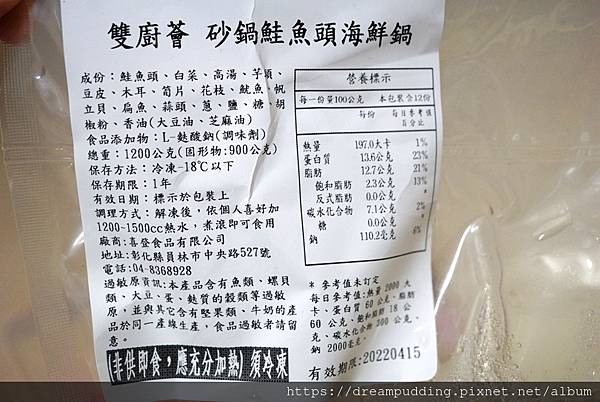 雙廚薈 砂鍋鮭魚頭海鮮鍋
成份：鮭魚頭、白菜、高湯、芋頭、
豆皮、木耳、筍片、花枝、魷魚、帆
立貝、扁魚、蒜頭、蔥、鹽、糖、胡
椒粉、香油(大豆油、芝麻油)
食品添加物：L-麩酸鈉(調味劑)
總重：1200公克(固形物:900公克)
保存方法：冷凍-18℃以下
保存期限：1年
有效日期：標示於包裝上
調理方式：解凍後，依個人喜好加
1200~1500cc熱水，煮滾即可食用
廠商:喜登食品有限公司
地址:彰化縣員林市中央路527號
電話:04-8368928
過敏原資訊:本產品含有魚類、螺貝
類、大豆、蛋、麩質的穀類等過敏
原，並與其它含有堅果類、牛奶的產
品於同一產線生產，食品過敏者請留
意。
(非供即食，應充分加熱) 須冷凍
營養標示
每一份量100公克 本包裝含12份
每份 每日參考值
百分比
熱量 197.0大卡 1%
蛋白質 13.6公克 23%
脂肪 12.7公克 21%
飽和脂肪 2.3公克 13%
反式脂肪 0.0公克 *
碳水化合物 7.1公克 2%
糖 0.0公克 *
鈉 110.2毫克 6%
* 參考值未訂定
每日參考值:熱量 2000 大
卡、蛋白質 60 公克、脂肪
60 公克、飽和脂肪 18 公
克、碳水化合物 300 公克、
鈉 2000毫克。
有效期限:20220415
https://dreampudding.pixnet.net/album